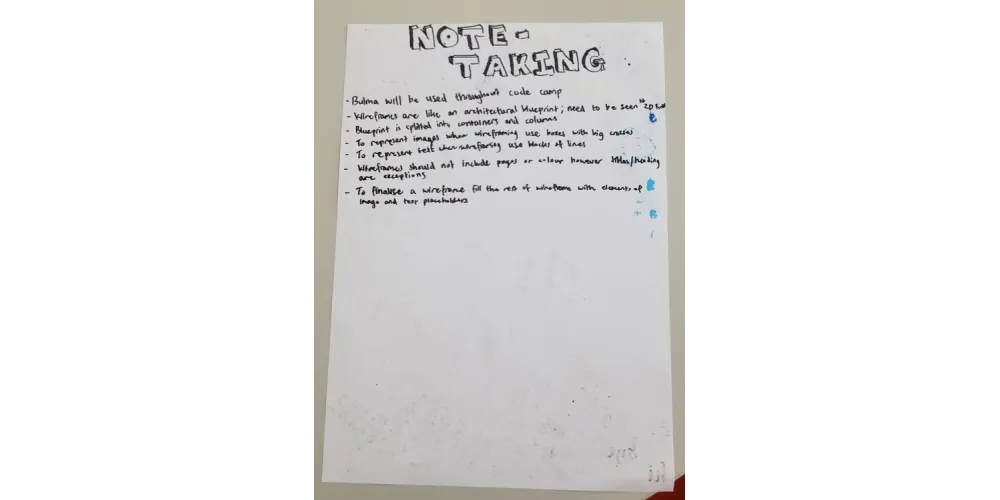 NOTE-
TAKING
- Bulma will be used throughout code camp
- Wireframes are like an architectural blueprint; need to be seen as 2D
- Blueprint is splitted into containers and columns
- To represent images when wireframing use boxes with big crosses
- To represent text when wireframing use blocks of lines
- Wireframes should not include pages or colour however titles/heading
are exceptions
- To finalise a wireframe fill the rest of wireframe with elements of
image and text placeholders